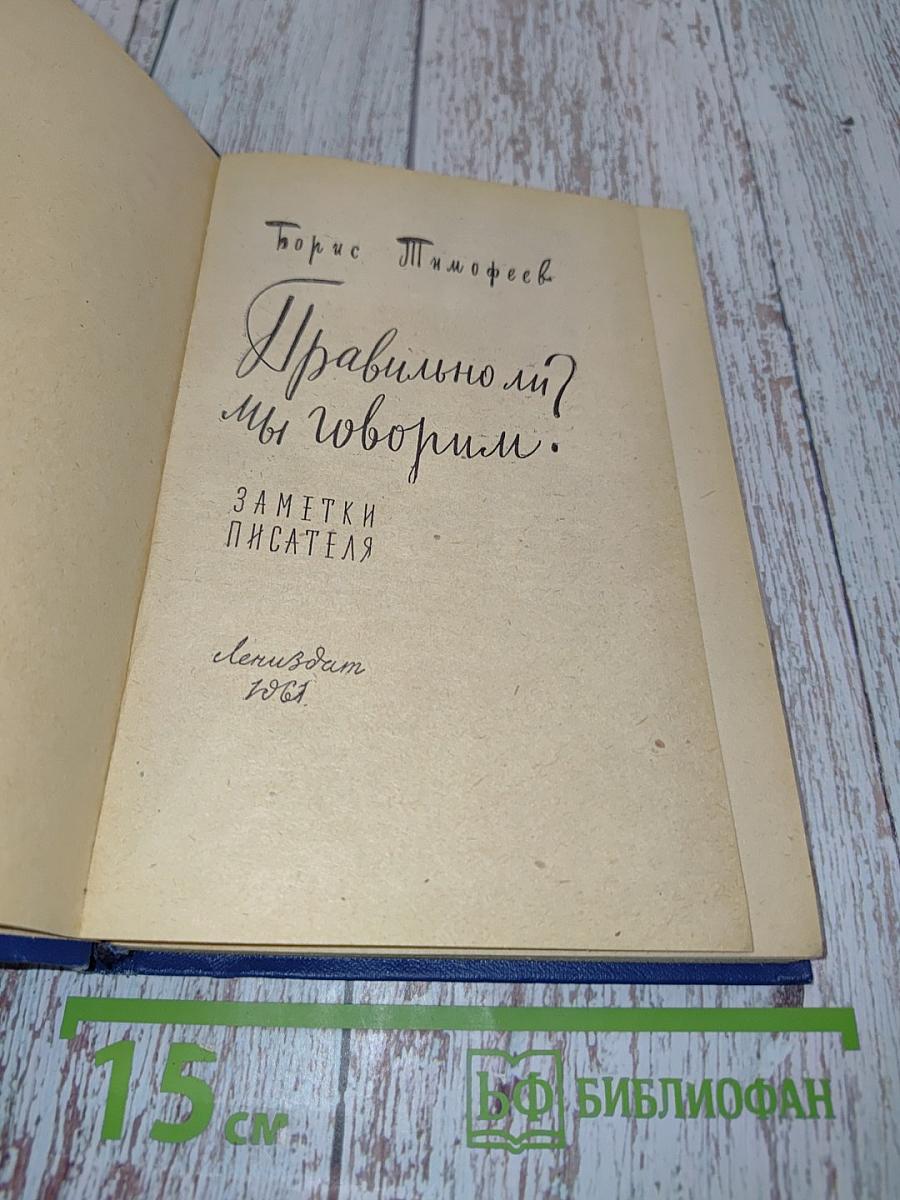 Борис Тимофеев
Правильно ли
мы говорим?
ЗАМЕТКИ
ПИСАТЕЛЯ
Лениздат
1961
15 см
БФ БИБЛИОФАН